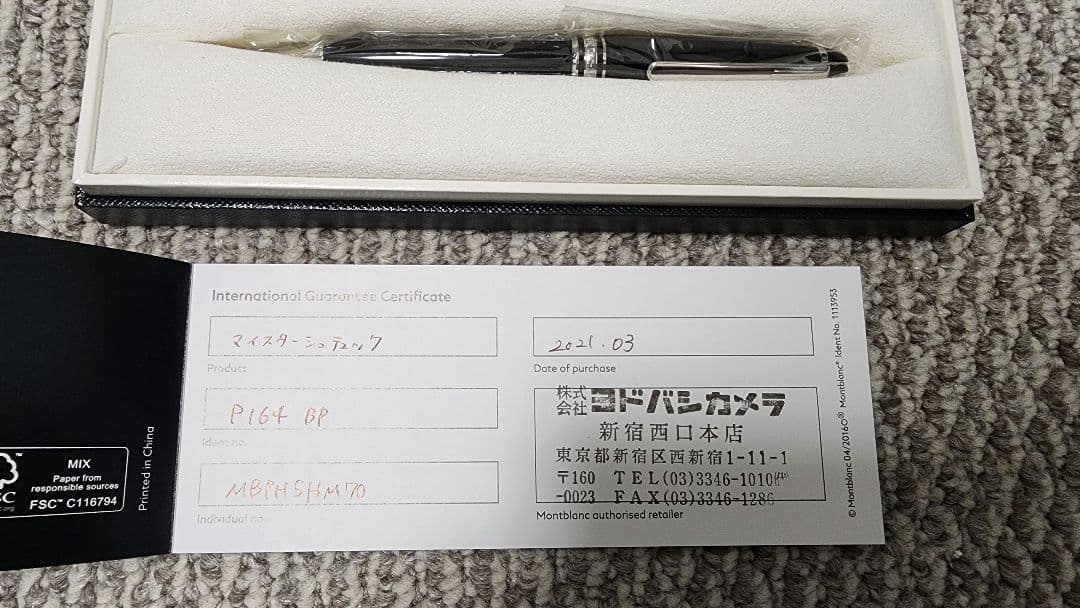 International Guarantee Certificate
マイスターシュテュック
Product
P164 BP
Ident no.
MBPH5HM70
Individual no.
2021.03
Date of purchase
株式会社 ヨドバシカメラ
新宿西口本店
東京都新宿区西新宿1-11-1
〒160-0023 TEL(03)3346-1010
FAX(03)3346-1286
Montblanc authorised retailer
© Montblanc 04/2016 Montblanc® Ident No. 1113953
MIX
Paper from
responsible sources
FSC™ C116794
Printed in China